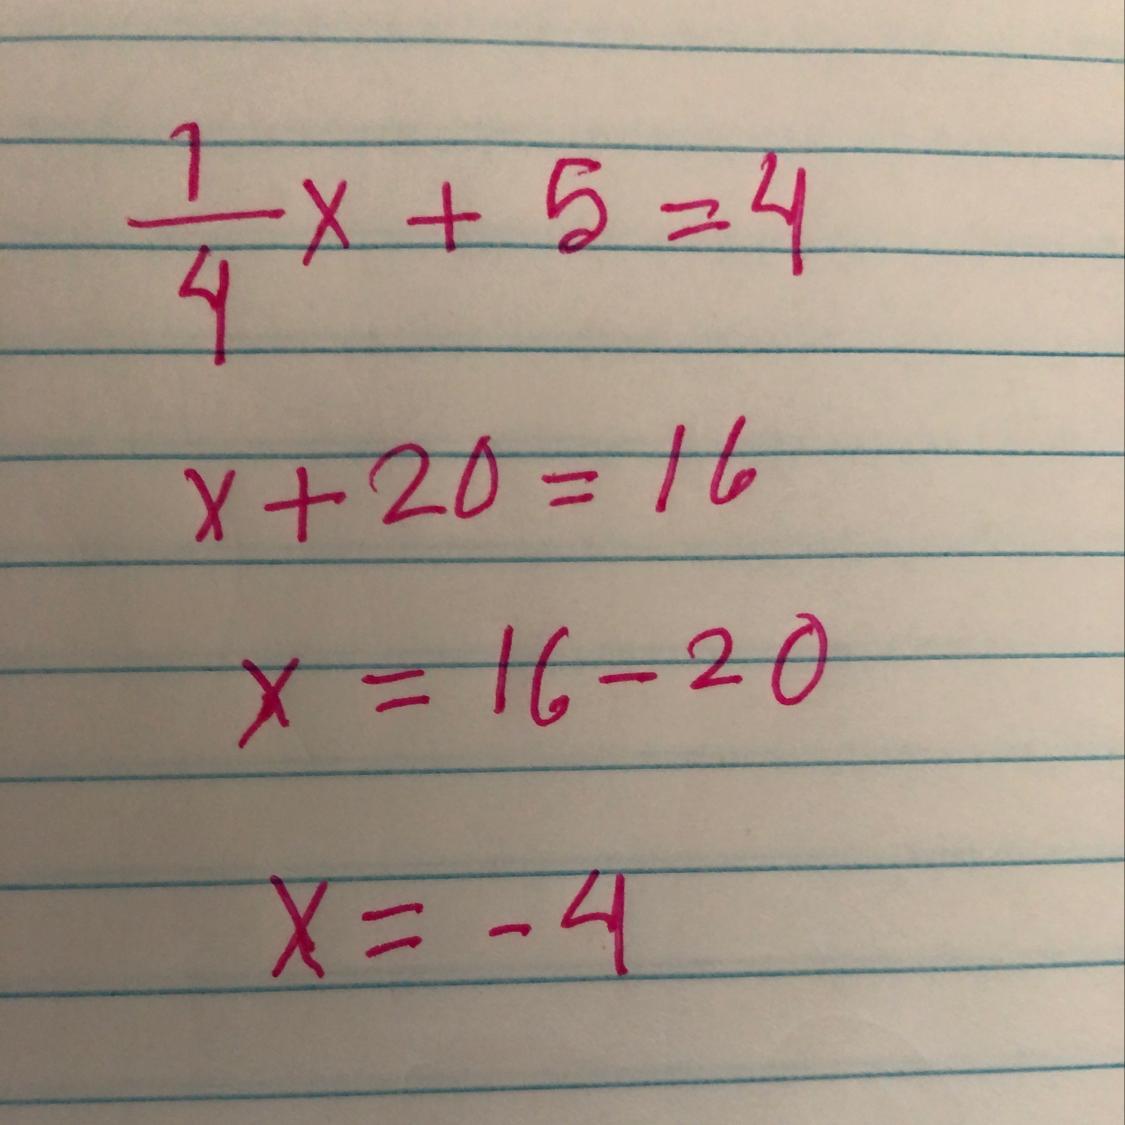 1/4 x + 5 = 4
x + 20 = 16
x = 16 - 20
x = - 4